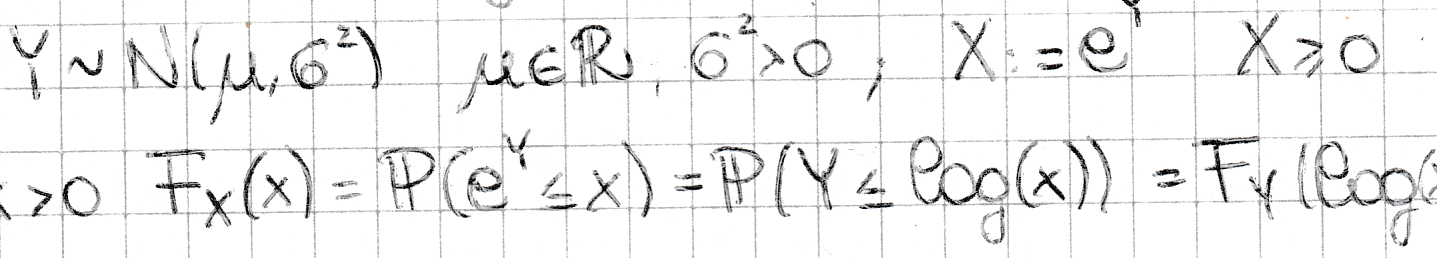 Y ~ N(μ, σ²) μ ∈ ℝ, σ² > 0; X := e^Y X ⩾ 0
x > 0 F_X(x) = ℙ(e^Y ≤ x) = ℙ(Y ≤ log(x)) = F_Y(log(